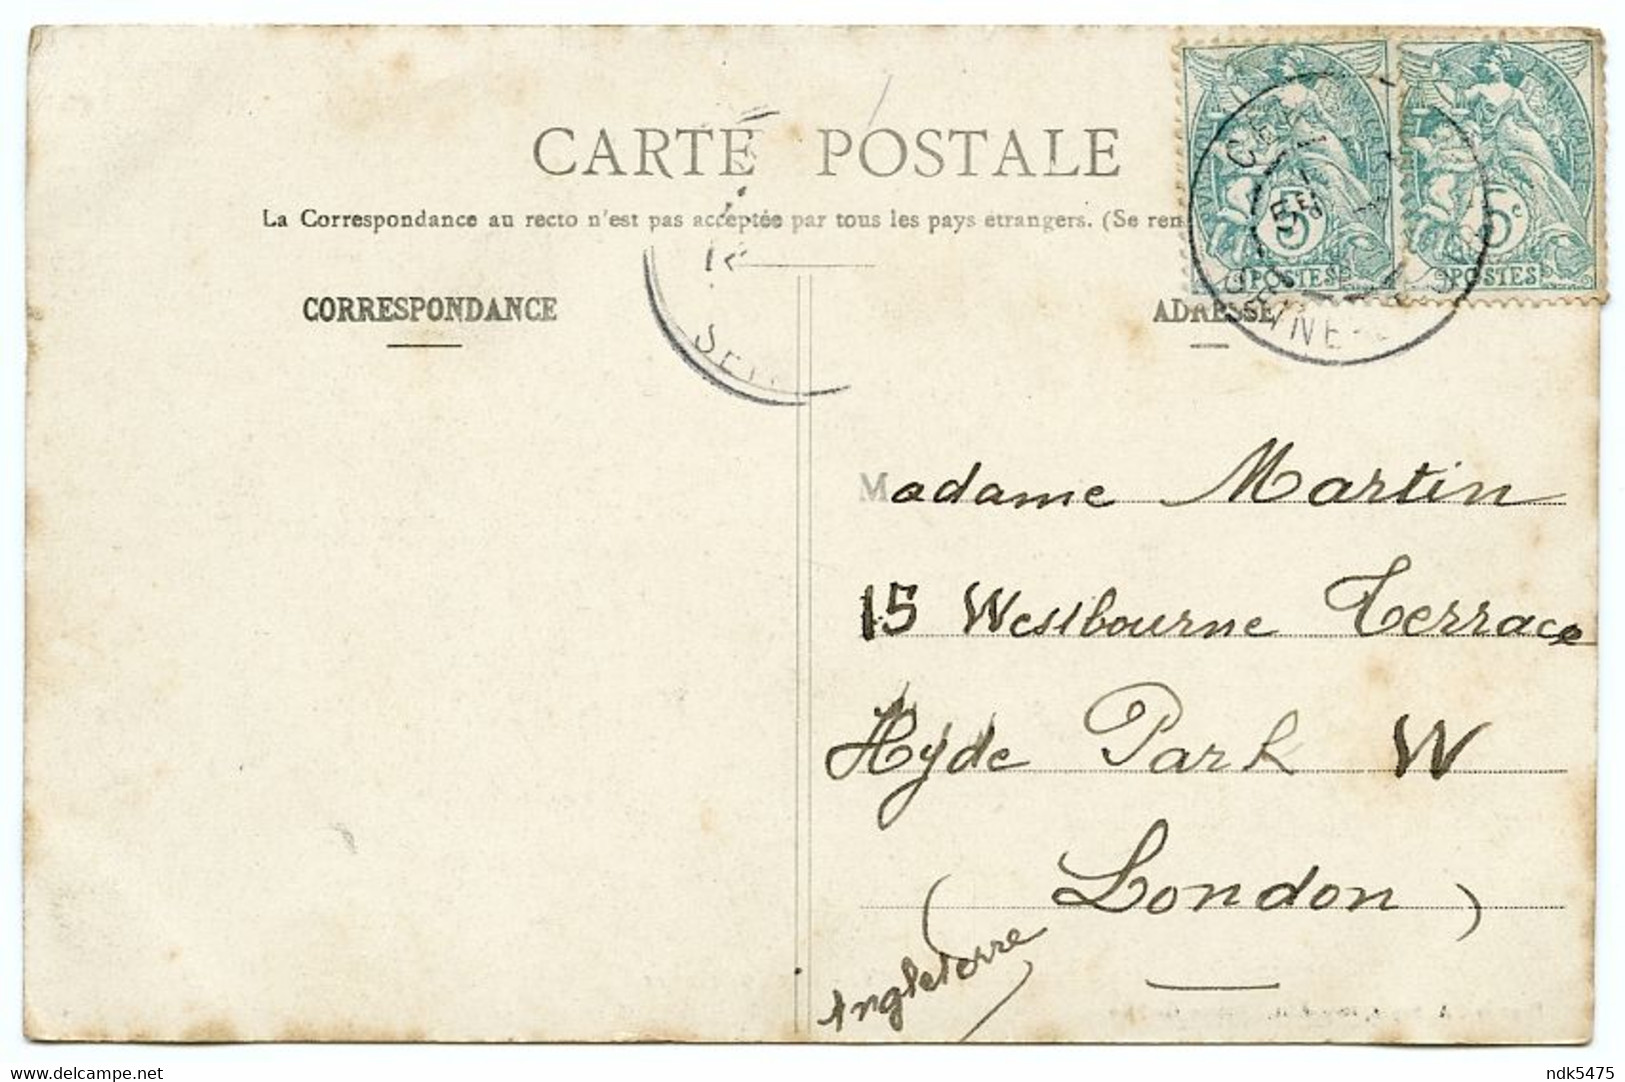 CARTE POSTALE
La Correspondance au recto n'est pas acceptée par tous les pays étrangers. (Se ren
CORRESPONDANCE
ADRESSE
5c
POSTES
5c
POSTES
Madame Martin
15 Westbourne Terrace
Hyde Park W
(London)
Angleterre
delcampe.net
ndk5475